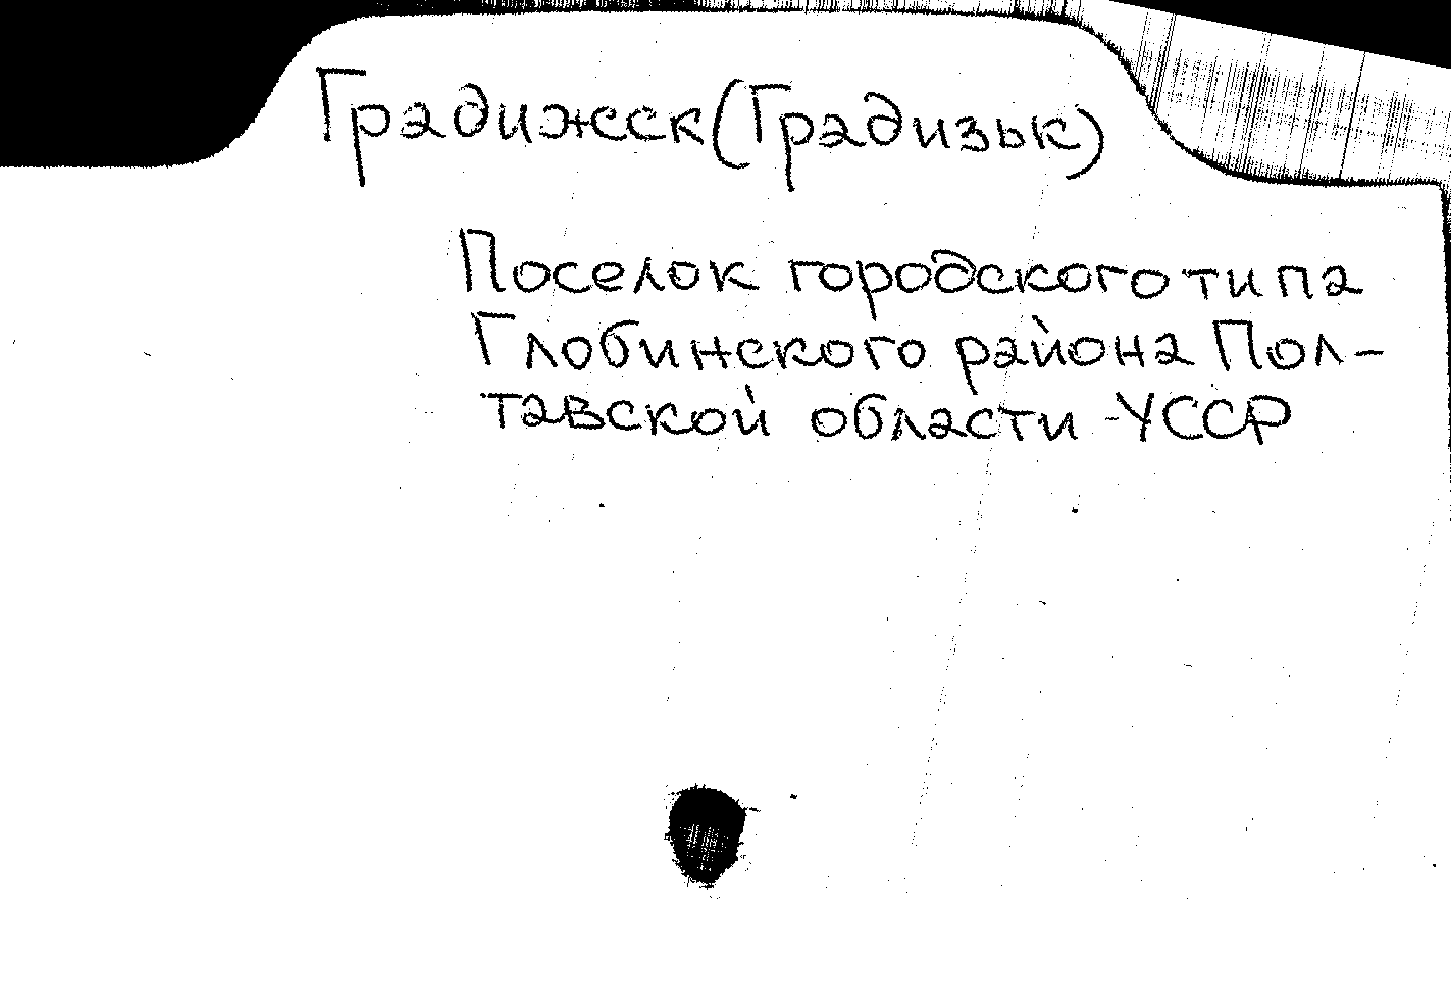 Градижск (Градизьк)
Поселок городского типа
Глобинского района Пол-
тавской области УССР